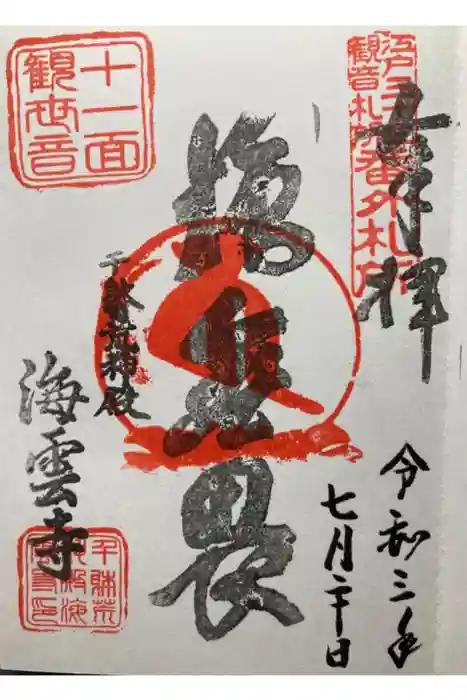 奉拝
江戸三十三
観音札所
番外札所
令和三年
七月二十日
施無畏
十一面
観世音
千躰荒神殿
海雲寺
千躰荒
神殿海
雲寺印